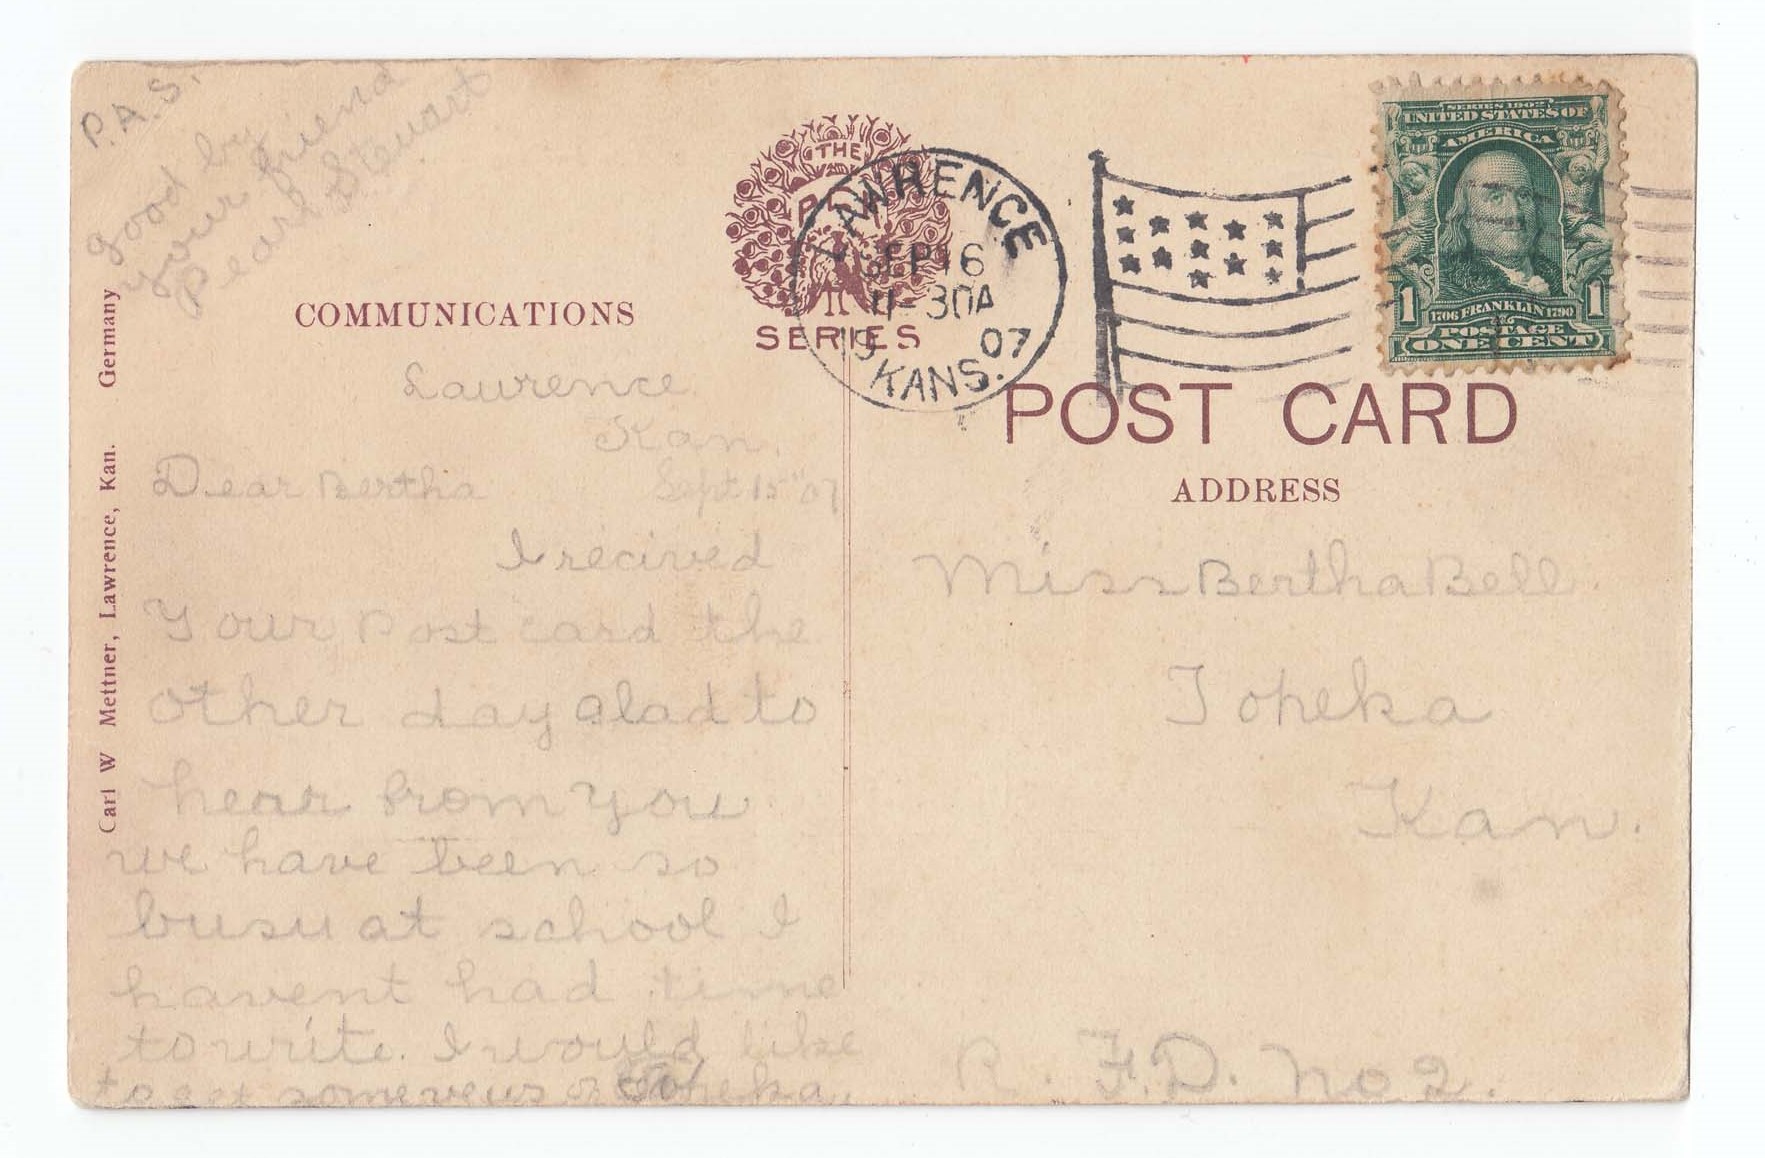 P.A.S.
good by
your friend
Pearl Stewart
THE
SERIES
LAWRENCE
SEP 16
11-30A
1907
KANS.
SERIES 1902
UNITED STATES OF
AMERICA
1706 FRANKLIN 1790
1 1
POSTAGE
ONE CENT
COMMUNICATIONS
POST CARD
ADDRESS
Carl W Mettner, Lawrence, Kan. Germany
Lawrence
Kan.
Dear Bertha Sept 15th 07
I recived
Your Post card the
other day glad to
hear from you
we have been so
busu at school I
havent had time
to write. I would like
to get some veus of Topeka.
Miss Bertha Bell.
Topeka
Kan.
R. F. D. No 2.